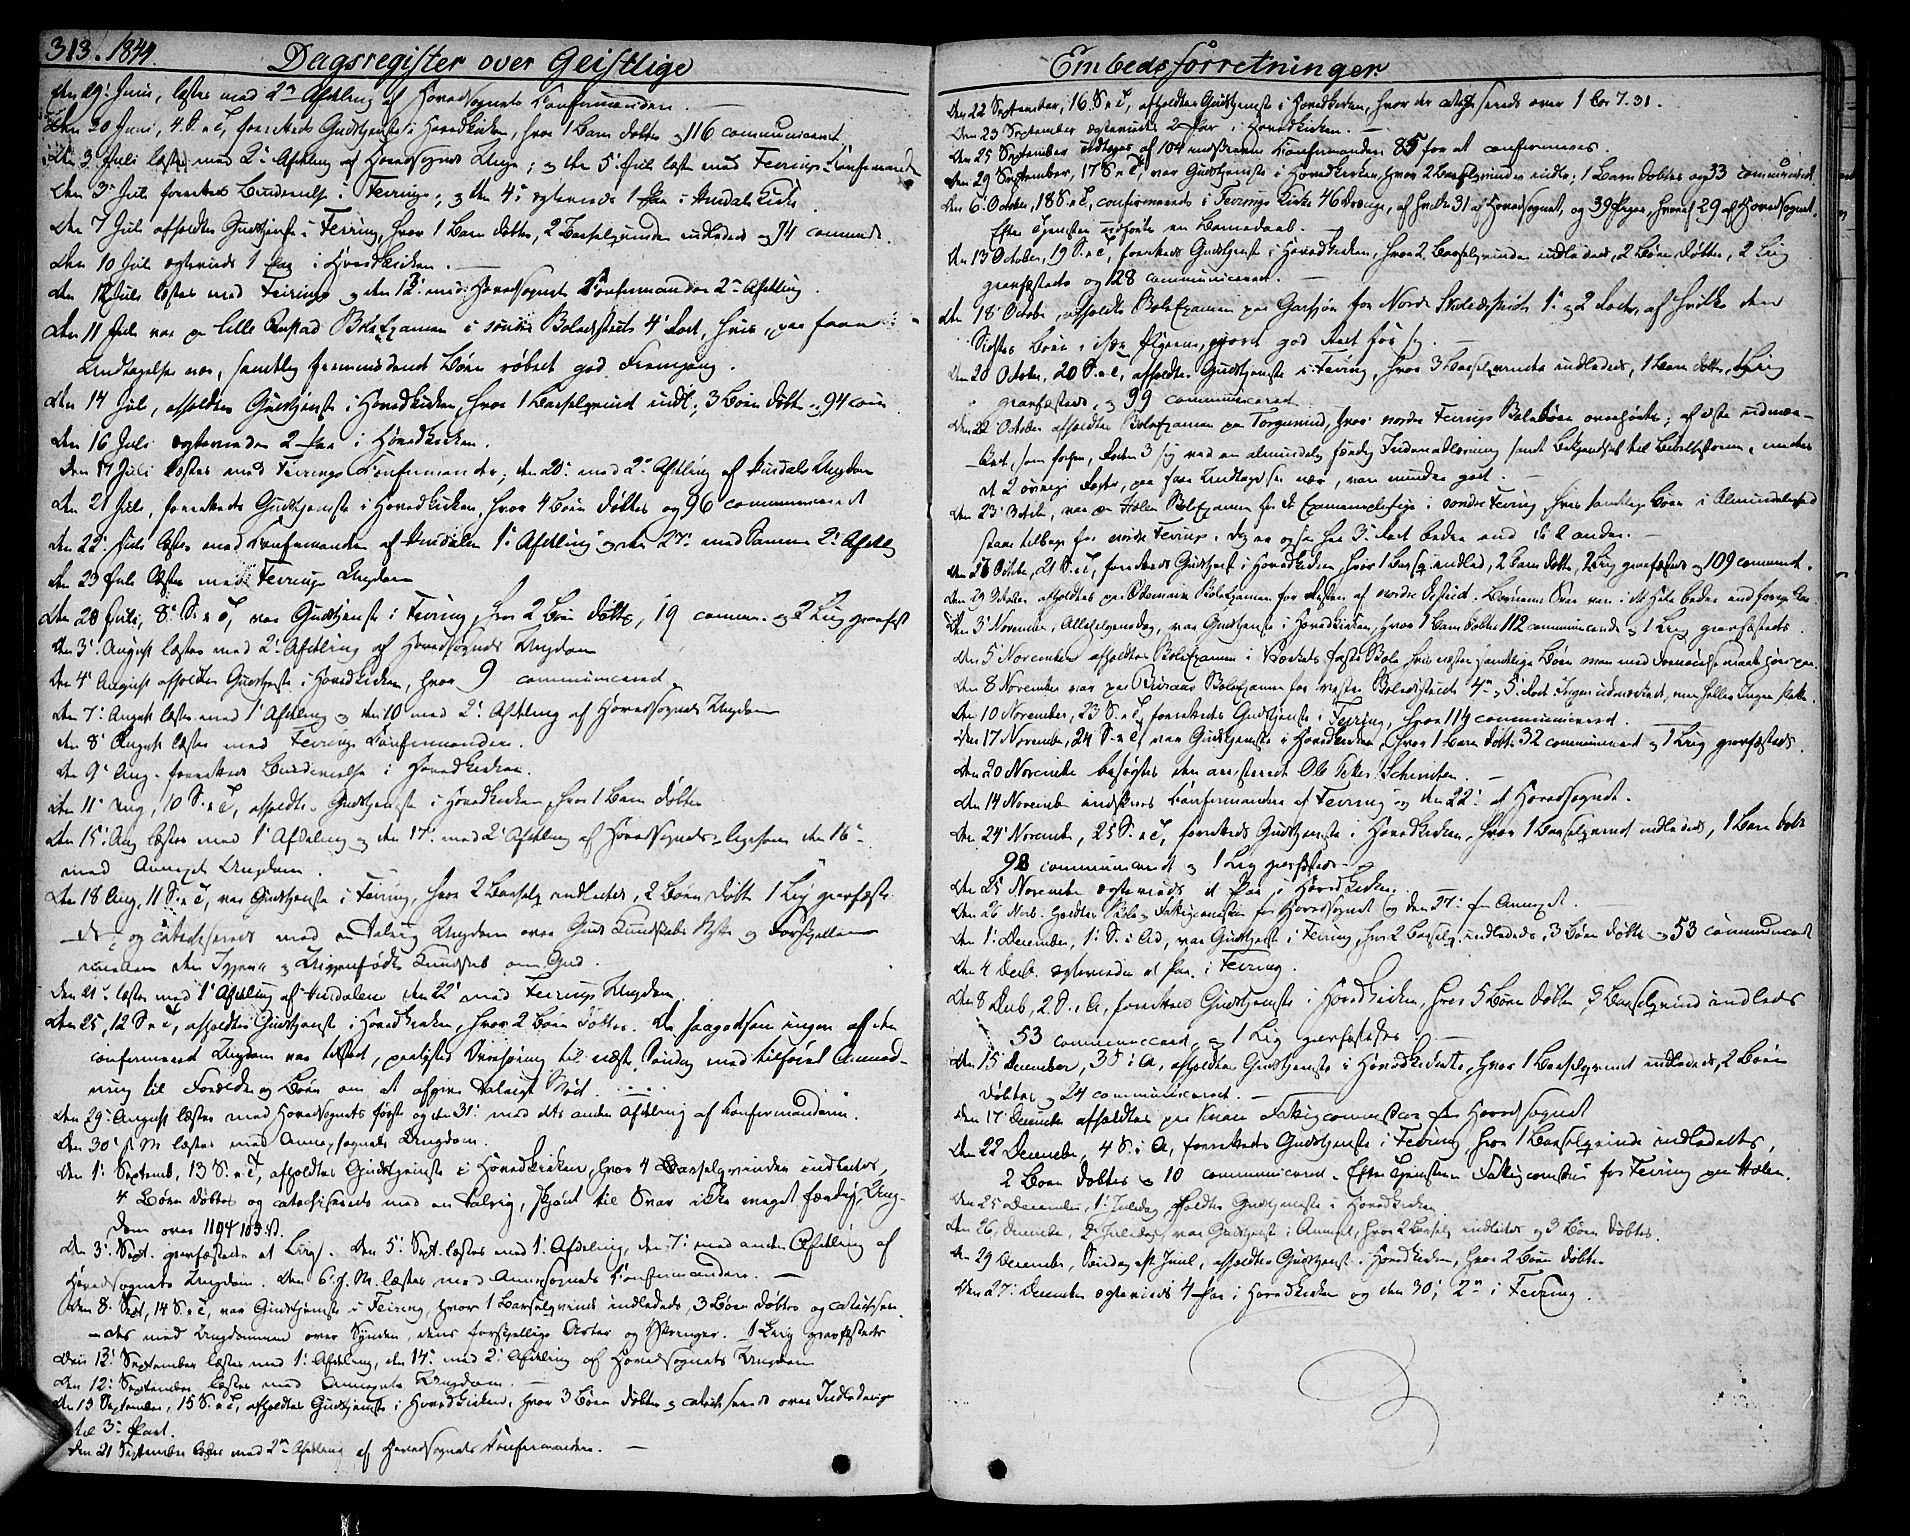 313. 1844.
Dagsregister over Geistlige
den 29' Juni, læstes med 2den Afdeling af Hovedsognets Confirmander. —
Den 30 Juni, 4. S. e T, forrettedes Gudstjeneste i Hovedkirken, hvor 1 Barn døbtes og 116 communiceret.
Den 3 Juli læstes med 2' Afdeling af Hovedsognets Unge; og den 5' Juli læst med Feirings Confirmander
Den 3' Juli i Feiring; og den 4' ægteviedes 1 Par i Hurdals Kirke
Den 7 Juli afholdtes Gudstjeneste i Feiring, hvor 1 Barn døbtes, 2 Barselqvinder indledede og 74 communic.
Den 10 Juli ægteviedes 1 Par i Hovedkirken. —
den læstes med Feirings og den 13' med Hovedsognets Confirmander 2' Afdeling.
Den 11 Juli var paa lille Skoleexamen i søndre Skoledistricts 4' Rode, hvis, paa faae
Undtagelser nær, samtlig fremmødende Børn røbet god Fremgang.
Den 14 Juli, afholdtes Gudstjeneste i Hovedkirken, hvor 1 Barselqvind indl. 3 Børn døbte, 94 com
Den 16 Juli ægteviedes 2 Par i Hovedkirken.
Den 17 Juli læstes med Feirings Confirmander; den 20' med 2' Afdeling af Hurdals Ungdom
Den 21 Juli, forrettedes Gudstjeneste i Hovedkirken, hvor 4 Børn døbtes og 96 communiceret
Den 22' Juli læstes med Confirmander af Hurdalen 1' Afdeling og den 27' med Samme 2' Afdeling
Den 23 Juli læstes med Feirings Ungdom
Den 28 Juli, 8' S. e T, var Gudstjeneste i Feiring, hvor 2 Børn døbtes, 19 commun. og 2 Liig gravfæst
den 3' August læstes med 2' Afdeling af Hovedsognets Ungdom
den 4' August afholdtes Gudstjeneste i Hovedkirken, hvor 9 communicered.
Den 7' August læstes med 1' Afdeling og den 10 med 2' Afdeling af Hovedsognets Ungdom
den 8' August læstes med Feirings Confirmander.
den 9' Aug. forrettedes i Hovedkirken.
den 11' Aug, 10 S. e T, afholdtes Gudstjeneste i Hovedkirken, hvor 1 Barn døbtes
den 15' Aug læstes med 1' Afdeling og den 17' med 2' Afdeling af Hovedsognets, ligesom den 16'
med Annexets Ungdom.
Den 18 Aug, 11 S. e T, var Gudstjeneste i Feiring, hvor 2 Barselq. indledede, 2 Børn døbte 1 Liig gravfæste
des, og catechiseredes med en Ungdom over Guds Kundskabs Nytte og Forskjellen
mellem den og Kundskab om Gud.
Den 21' læstes med 1' Afdeling af Hurdalen den 22' med Feirings Ungdom
Den 25, 12 S. e T, afholdtes Gudstjeneste i Hovedkirken, hvor 2 Børn døbtes. Da saagodtsom ingen af den
confirmerede Ungdom var tilstede, til næste Søndag med tilføiet Anmod-
ning til Forældre og Børn om at afgive talrigt Møde.
den 29' August læstes med Hovedsognets første og den 31' med dets anden Afdeling af Confirmanderne.
den 30' s. M læstes med Annexsognets Ungdom.
Den 1' Septemb, 13 S. e T, afholdtes Gudstjeneste i Hovedkirken, hvor 4 Barselqvinder indlededes,
4 Børn døbtes og catechiseredes med en talrig, skjønt til Svar ikke meget færdig, Ung-
dom over 1194 103 .
den 3' Sept. gravfæstede et Liig. den 5' Sept. læstes med 1' Afdeling, den 7' med anden Afdeling af
Hovedsognets Ungdom. den 6' s. M. læstes med Annexsognets Confirmander. —
den 8' Sept, 14 S. e T, var Gudstjeneste i Feiring, hvor 1 Barselqvind indledede, 3 Børn døbtes og catechise
des med Ungdommen over Synden, dens forskjellige Arter og . 1 Liig gravfæstedes
den 12' September læstes med 1' Afdeling, den 14' med 2' Afdeling af Hovedsognets Ungdom
den 12' September læstes med Annexets Ungdom. —
den 15 September, 15 S. e T, afholdtes Gudstjeneste i Hovedkirken, hvor 3 Børn døbtes og catechiseredes over Indledning
til 3' Part.
den 21 September læstes med 2den Afdeling af Hovedsognets Confirmander. —
Embedsforretninger.
den 22 September, 16. S. e T, afholdtes Gudstjeneste i Hovedkirken, hvor der catechiseredes over 1 Cor 7. 31.
den 23 September ægteviedes 2 Par i Hovedkirken. —
den 25 September udtoges af 104 indskrevne Confirmander 85 for at confirmeres.
den 29 September, 17 S. e T, var Gudstjeneste i Hovedkirken, hvor 2 Barselqvinder indledes, 1 Barn døbtes og 33 communiceret.
den 6' October, 18 S. e T, confirmeredes i Feirings Kirke 46 Drenge, af hvilke 31 af Hovedsognet, og 39 Piger, hvoraf 29 af Hovedsognet.
Efter Tjenesten udførtes en Barnedaab.
den 13 October, 19 S. e T, forrettedes Gudstjeneste i Hovedkirken, hvor 2 Barselqvinder indledede, 2 Børn døbtes, 2 Liig
gravfæstedes og 128 communiceret. —
den 18' October, afholdtes Skoleexamen paa Garsjøe for Nordre Skoledistricts 1' og 2' Roder, af hvilke den
Sidstes Børn, især Pigerne, gjorde god Rede for sig. —
den 20 October, 20 S. e T, afholdtes Gudstjeneste i Feiring, hvor 3 Barselqvinder indledede, 1 Barn døbtes, 1 Liig
gravfæstedes, og 99 communicered.
den 22 October afholdtes Skoleexamen paa Torgunrud, hvor nordre Feirings Skolebørn overhørtes; af
men
de 2 øvrige Roder, paa faae Undtagelser nær, vare mindre god.
den 23' October, var paa Holen Skoleexamen for de Examenspligtige i søndre Feiring hvis samtlige Børn i Almindelighed
staae tilbage for nordre Feiring. Dog var og saa her 3' Rode bedre end de 2 andre. —
den 26 October, 21 S. e T, forrettedes Gudstjeneste i Hovedkirken, hvor 1 Barselq. indled, 2 Barn døbte, 2 Liig gravfæstedes og 109 communic.
den 29 October afholdtes paa Ødemark Skoleexamen for Resten af nordre District. Børnenes Svar vare i det Hele bedre end forrige
Den 3' November, Allehelgensdag, var Gudstjeneste i Hovedkirken, hvor 1 Barn døbtes 112 communicerede og 1 Liig gravfæstedes.
den 5' November afholdtes Skoleexamen i Værkets faste Skole hvis næsten samtlige Børn man med Fornøielse
den 8 November var paa Skoleexamen for vestre Skoledistricts 4de og 5' Rode. Ingen udmærket, men heller ingen slette.
den 10 November, 23 S. e T, forrettedes Gudstjeneste i Feiring, hvor 114 communicered.
den 17 November, 24 S. e T, var Gudstjeneste i Hovedkirken, hvor 1 Barn døbtes 32 communicered og 1 Liig gravfæstedes.
den 20 November besøgtes den arresterede Ole Peter Schmiten. —
den 14 November indskreves Confirmanderne af Feiring og den 22' af Hovedsognet.
den 24' November, 25 S. e T, forrettedes Gudstjeneste i Hovedkirken, hvor 1 Barselqvind indledede, 1 Barn døbt
98 communiceret og 1 Liig gravfæstedes.
den 25 November ægteviedes et Par i Hovedkirken.
den 26 Novb. holdtes Skole og Fattigcommission for Hovedsognet og den 27' for Annexet. —
den 1' December, 1' S. i Ad, var Gudstjeneste i Feiring, hvor 2 Barselq. indledede, 3 Børn døbte og 53 communiceret
den 4 Decb. ægteviedes et Par i Feiring.
den 8 Decb, 2. S. i A, forrettedes Gudstjeneste i Hovedkirken, hvor 5 Børn døbtes 3 Barselqvind indledes
53 communicered og 1 Liig gravfæstedes —
den 15 December, 3 S i A, afholdtes Gudstjeneste i Hovedkirken, hvor 1 Barselqvind indledede, 2 Børn
døbtes og 24 communicered. —
den 17 December afholdtes paa Fattigcommission for Hovedsognet
den 22 December, 4 S. i A, forrettedes Gudstjeneste i Feiring, hvor 1 Barselqvinde indlededes,
2 Børn døbtes og 10 communicered. Efter Tjenesten Fattigcommission for Feiring paa Holen.
den 25 December, 1' Juledag, holdtes Gudstjeneste i Hovedkirken.
den 26, December, 2' Juledag, var Gudstjeneste i Annexet, hvor 2 Barselq indlededes og 3 Børn døbtes.
den 29 December, Søndag eft. Juul, afholdtes Gudstjeneste i Hovedkirken, hvor 2 Børn døbtes
den 27' December ægteviedes 4 Par i Hovedkirken og den 30', 2de i Feiring.